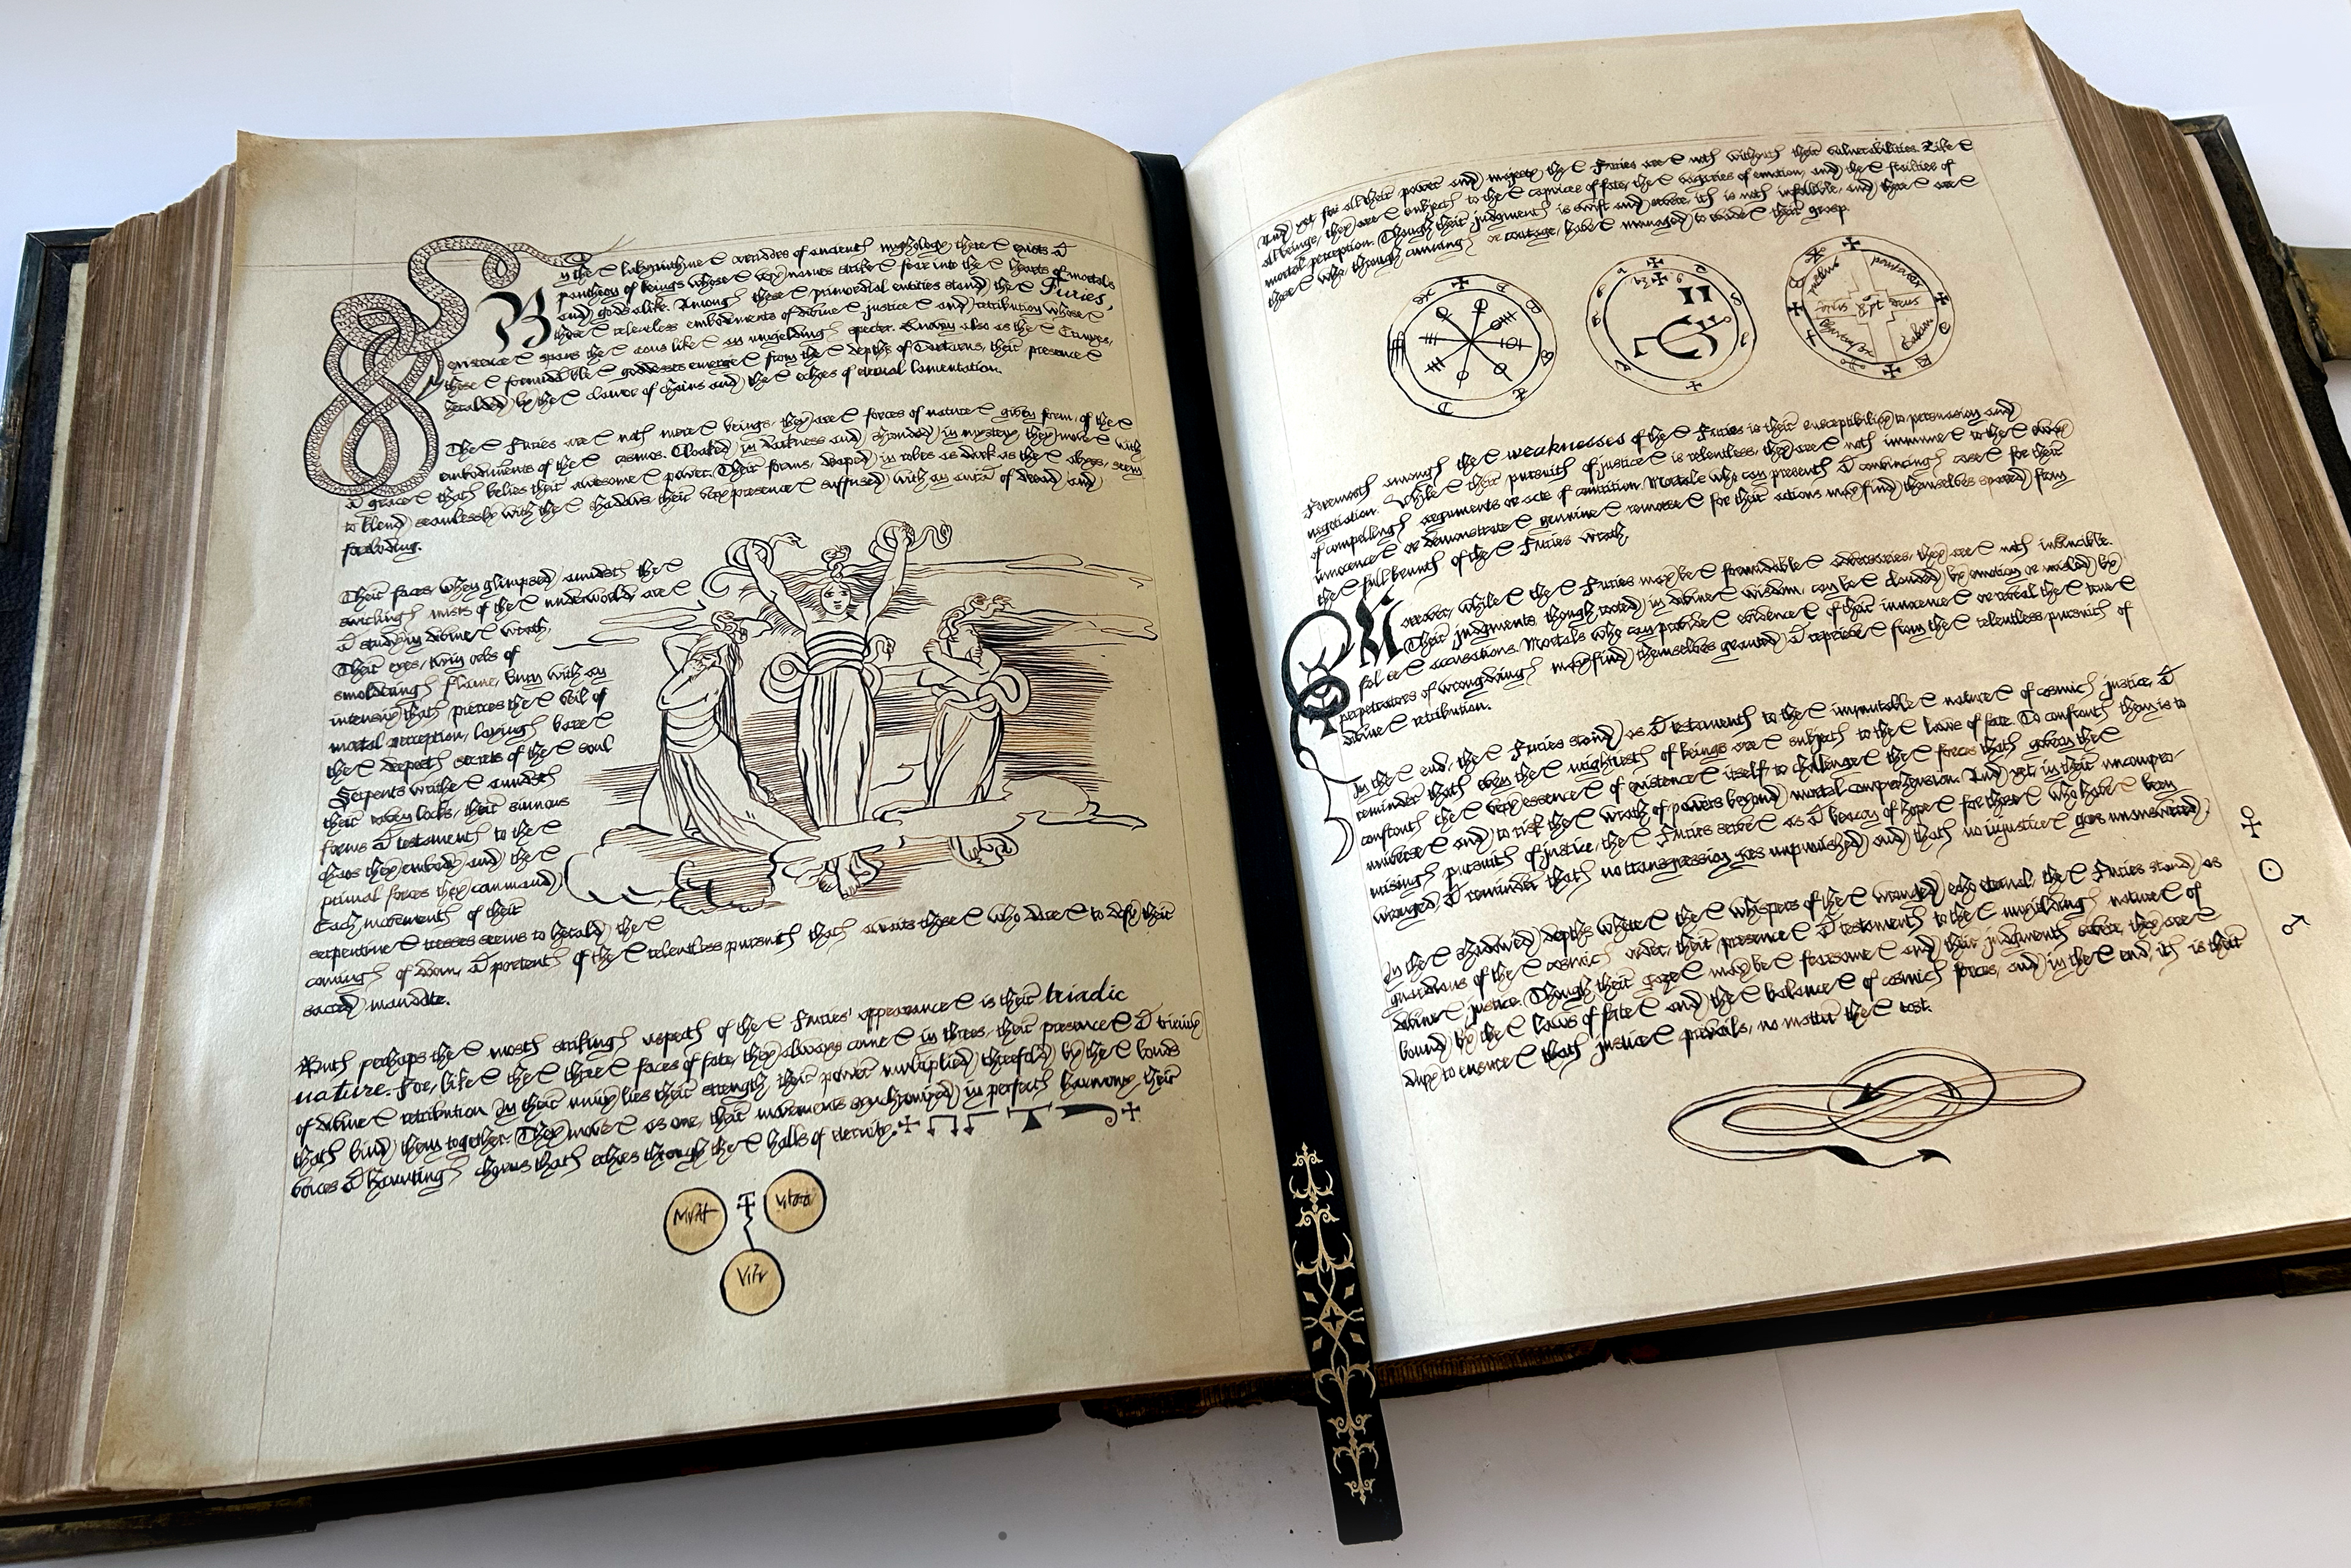 In the labyrinthine corridors of ancient mythology, there exists a
pantheon of beings whose very names strike fear into the hearts of mortals
and gods alike. Among these primordial entities stand the Furies,
those relentless embodiments of divine justice and retribution whose
existence spans the eons like an unyielding specter. Known also as the Erinyes,
these formidable goddesses emerge from the depths of Tartarus, their presence
heralded by the clamor of chains and the echoes of eternal lamentation.
The Furies are not mere beings, they are forces of nature given form, of the
embodiments of the cosmos. Cloaked in darkness and shrouded in mystery, they move with
a grace that belies their awesome power. Their forms, draped in robes as dark as the abyss, seem
to blend seamlessly with the shadows, their very presence suffused with an aura of dread and
foreboding.
Their faces, when glimpsed amidst the
swirling mists of the underworld, are
a study in divine wrath,
Their eyes, twin orbs of
smoldering flame, burn with an
intensity that pierces the veil of
mortal perception, laying bare
the deepest secrets of the soul
Serpents writhe amidst
their raven locks, their sinuous
forms a testament to the
chaos they embody and the
primal forces they command
Each movement of their
serpentine tresses seems to herald the
coming of doom, a portent of the relentless pursuit that awaits those who dare to defy their
sacred mandate.
But perhaps the most striking aspect of the Furies' appearance is their triadic
nature. For, like the three faces of fate, they always come in threes, their presence a trinity
of divine retribution. In their unity lies their strength, their power multiplied threefold by the bonds
that bind them together. They move as one, their movements synchronized in perfect harmony, their
voices a haunting chorus that echoes through the halls of eternity.
And yet for all their power and majesty the Furies are not without their vulnerabilities. Like
all beings, they are subject to the caprices of fate, the vagaries of emotion, and the frailties of
mortal perception. Though their judgment is swift and severe, it is not infallible, and there are
those who, through cunning or courage, have managed to evade their grasp.
Foremost among the weaknesses of the Furies is their susceptibility to persuasion and
negotiation. While their pursuit of justice is relentless, they are not immune to the sway
of compelling arguments or acts of contrition. Mortals who can present a convincing case for their
innocence or demonstrate genuine remorse for their actions may find themselves spared from
the full brunt of the Furies wrath.
Moreover, while the Furies may be formidable adversaries, they are not invincible.
Their judgments, though rooted in divine wisdom, can be clouded by emotion or misled by
false accusations. Mortals who can provide evidence of their innocence or reveal the true
perpetrators of wrongdoing may find themselves granted a reprieve from the relentless pursuit of
divine retribution.
In the end, the Furies stand as a testament to the immutable nature of cosmic justice, a
reminder that even the mightiest of beings are subject to the laws of fate. To confront them is to
confront the very essence of existence itself, to challenge the forces that govern the
universe and to risk the wrath of powers beyond mortal comprehension. And yet, in their uncompro-
mising pursuit of justice, the Furies serve as a beacon of hope for those who have been
wronged, a reminder that no transgression goes unpunished and that no injustice goes unanswered.
In the shadowed depths where the whispers of the wronged echo eternal, the Furies stand as
guardians of the cosmic order, their presence a testament to the unyielding nature of
divine justice. Though their gaze may be fearsome and their judgment severe, they are
bound by the laws of fate and the balance of cosmic forces, and in the end, it is their
duty to ensure that justice prevails, no matter the cost.